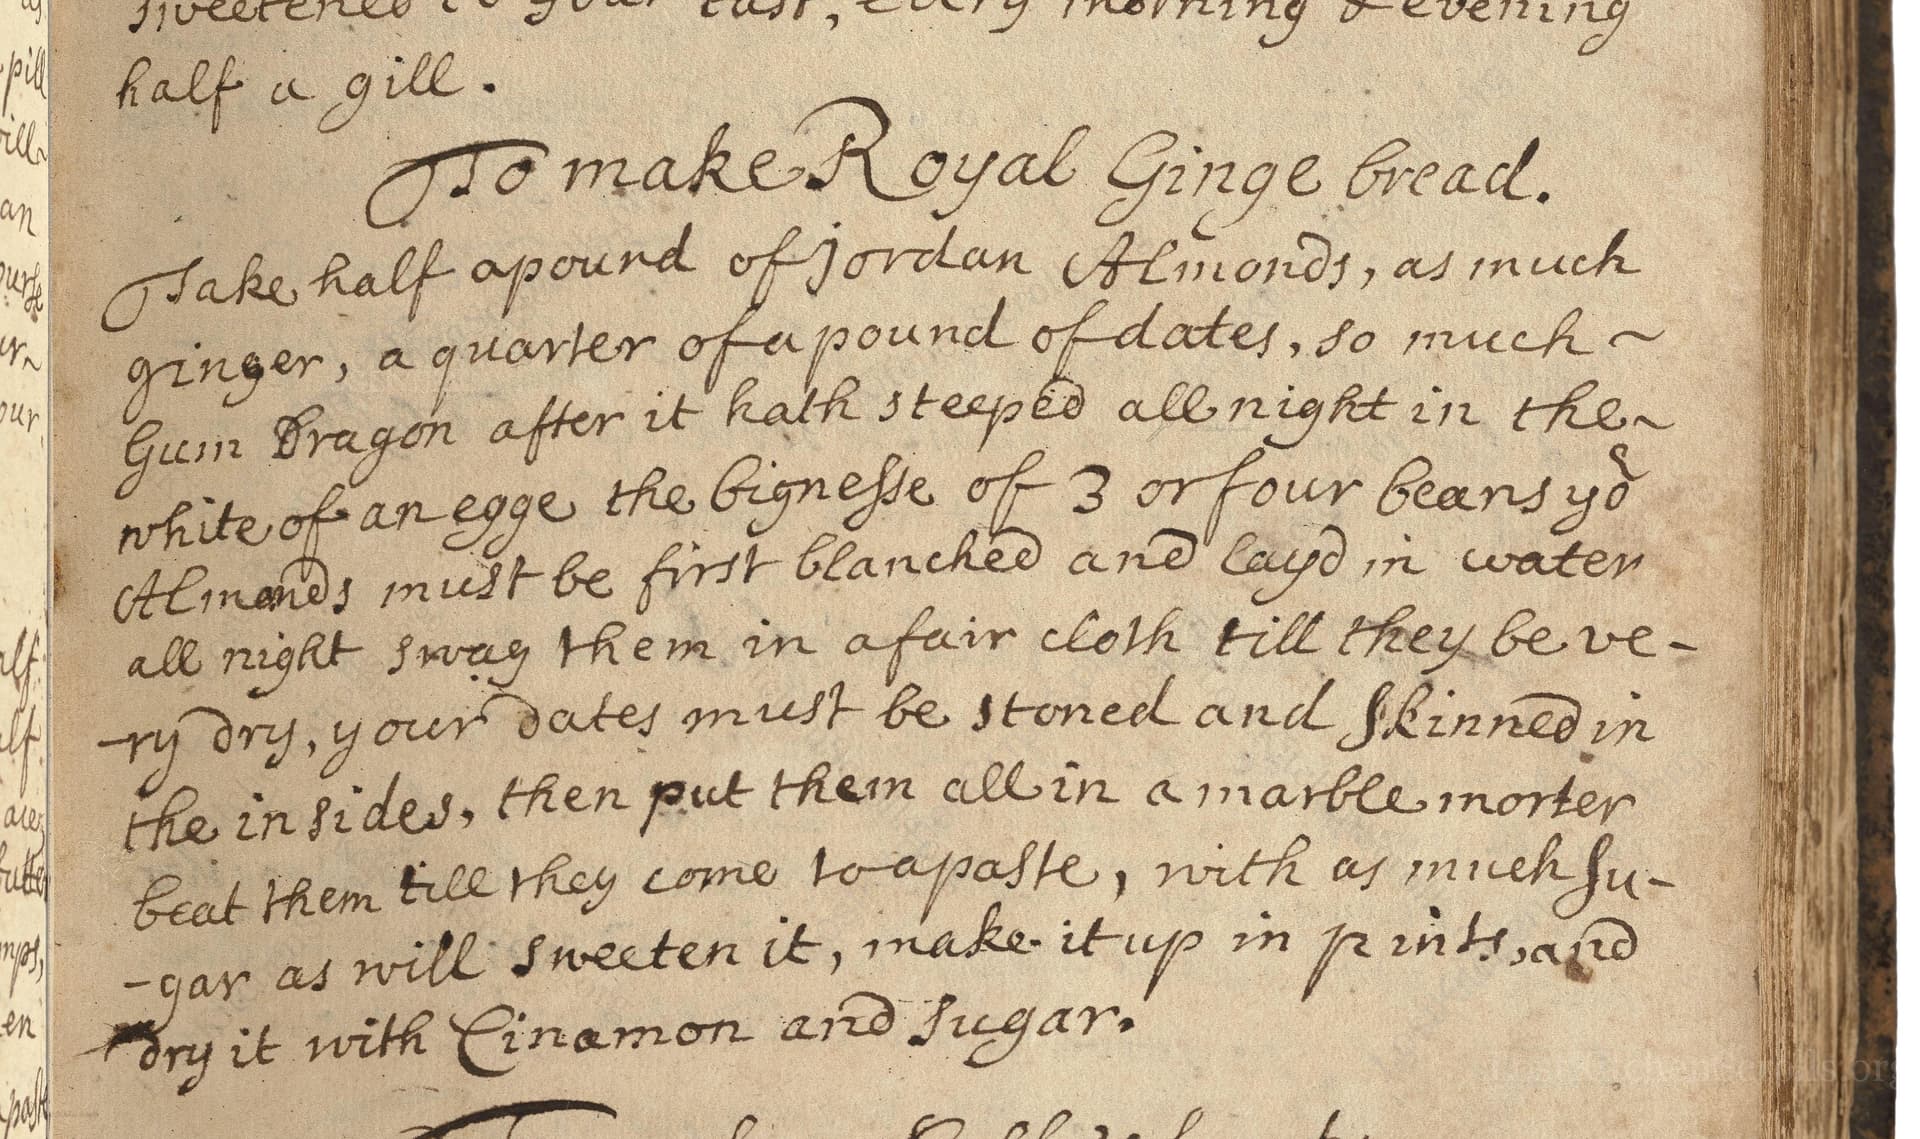 sweetened to your tast, every morning & evening
half a gill.
To make Royal Ginge bread.
Take half a pound of jordan Almonds, as much
ginger, a quarter of a pound of dates, so much ~
Gum Dragon after it hath steeped all night in the ~
white of an egge the bignesse of 3 or four beans yor
Almonds must be first blanched and layd in water
all night swag them in a fair cloth till they be ve-
-ry dry, your dates must be stoned and skinned in
the insides, then put them all in a marble morter
beat them till they come to a paste, with as much su-
-gar as will sweeten it, make it up in prints, and
dry it with Cinamon and sugar.